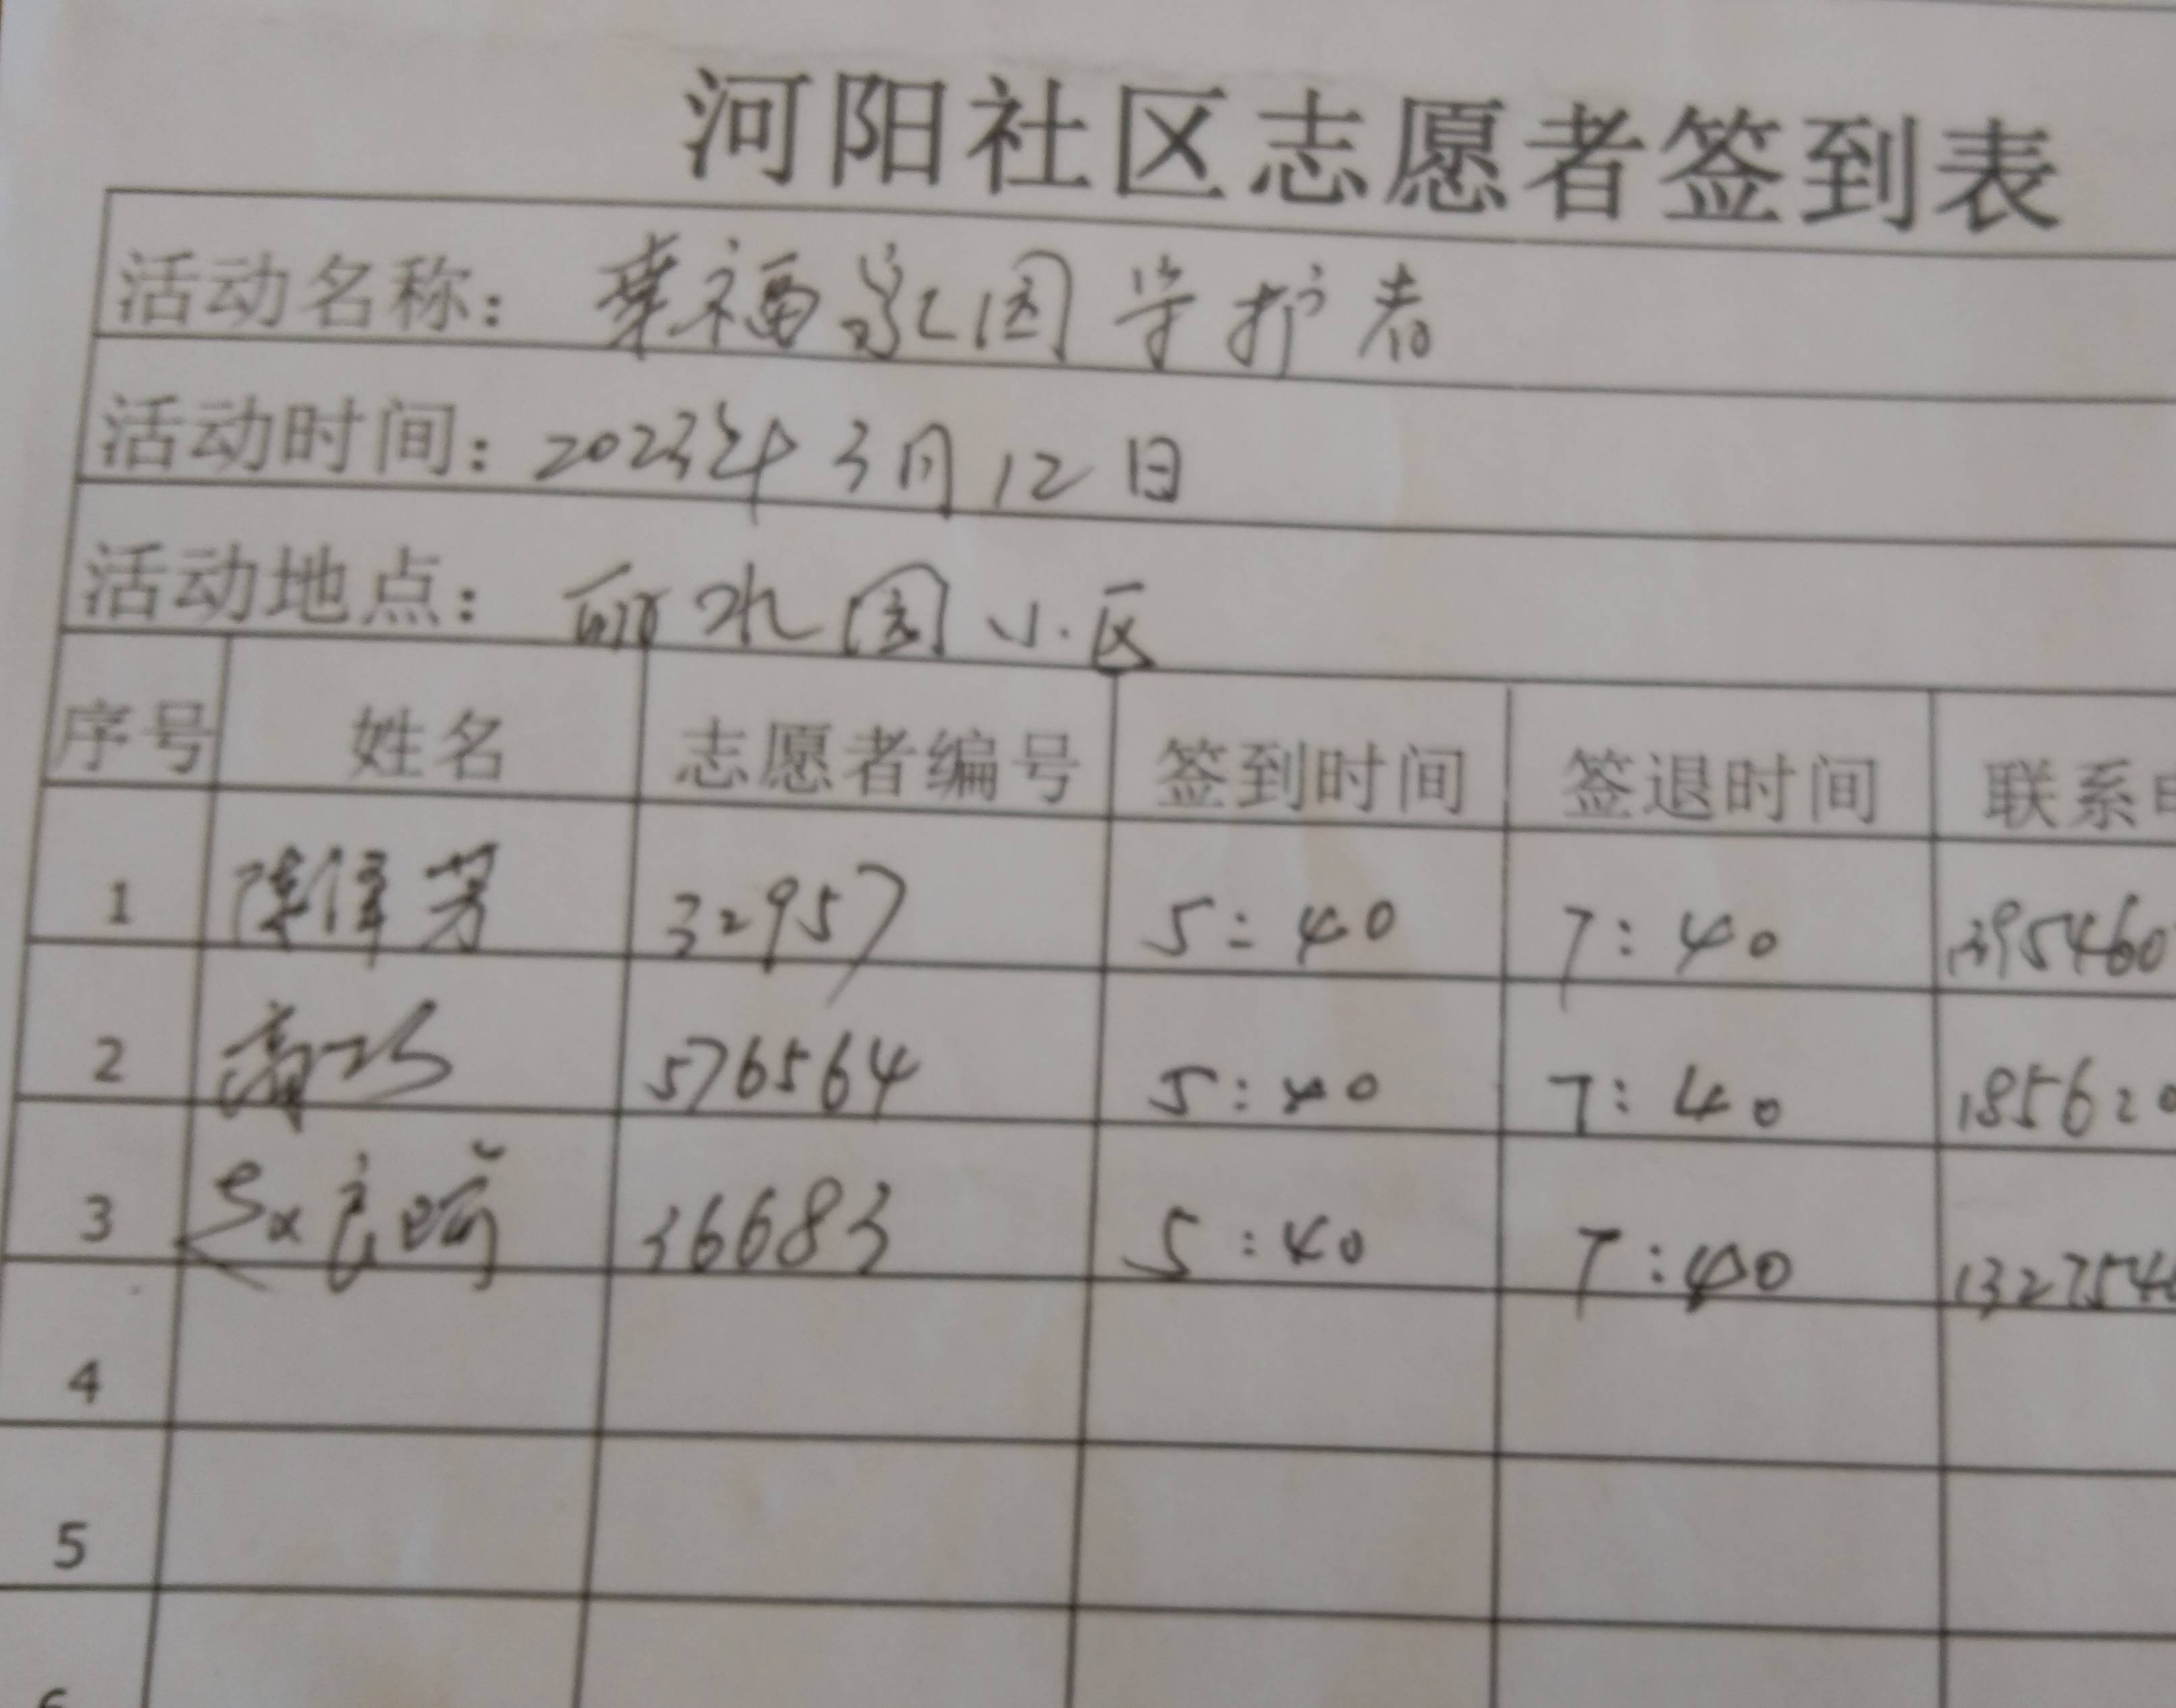 河阳社区志愿者签到表
活动名称：幸福家园守护者
活动时间：2023年3月12日
活动地点：丽水园小区
序号 姓名 志愿者编号 签到时间 签退时间 联系
1 陈泽芳 32957 5:40 7:40 1395460
2 576564 5:40 7:40 185620
3 36683 5:40 7:40 1327546
4
5
6